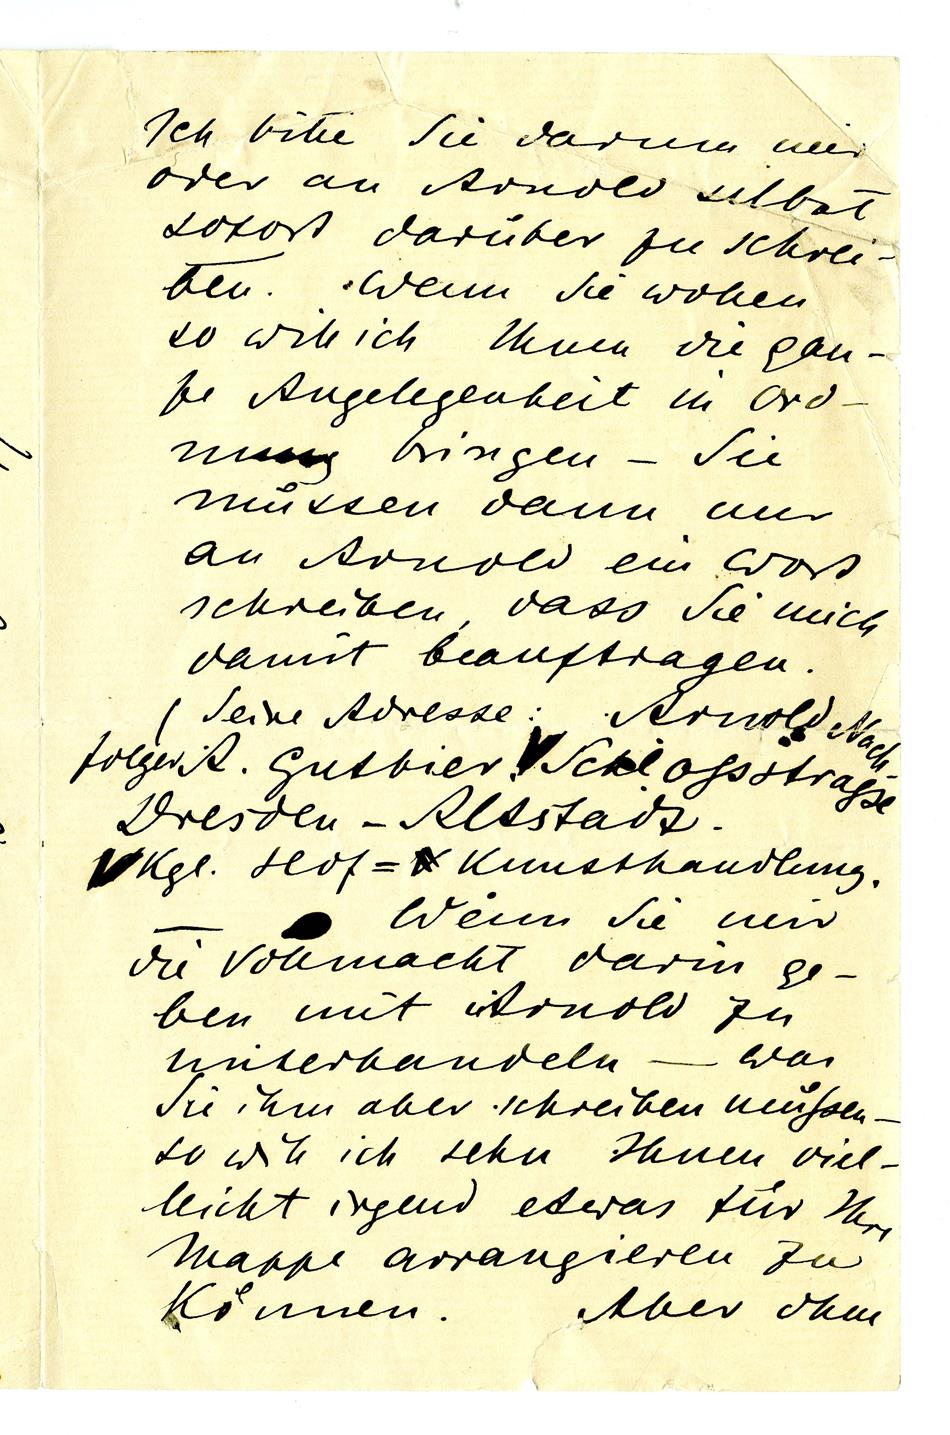 Ich bitte Sie darum mir
oder an Arnold selbst
sofort darüber zu schrei-
ben. Wenn Sie wollen
so will ich Ihnen die gan-
ze Angelegenheit in Ord-
nung bringen – Sie
müssen dann nur
an Arnold ein Wort
schreiben, dass Sie mich
damit beauftragen.
( Seine Adresse: Arnold Nach-
folger A. Gutbier. Schlossstrasse
Dresden – Altstadt.
Kgl. Hof = Kunsthandlung.
Wenn Sie mir
die Vollmacht darin ge-
ben mit Arnold zu
unterhandeln — was
Sie ihm aber schreiben müssen –
so will ich sehn Ihnen viel-
leicht irgend etwas für Ihre
Mappe arrangieren zu
können. Aber ohne